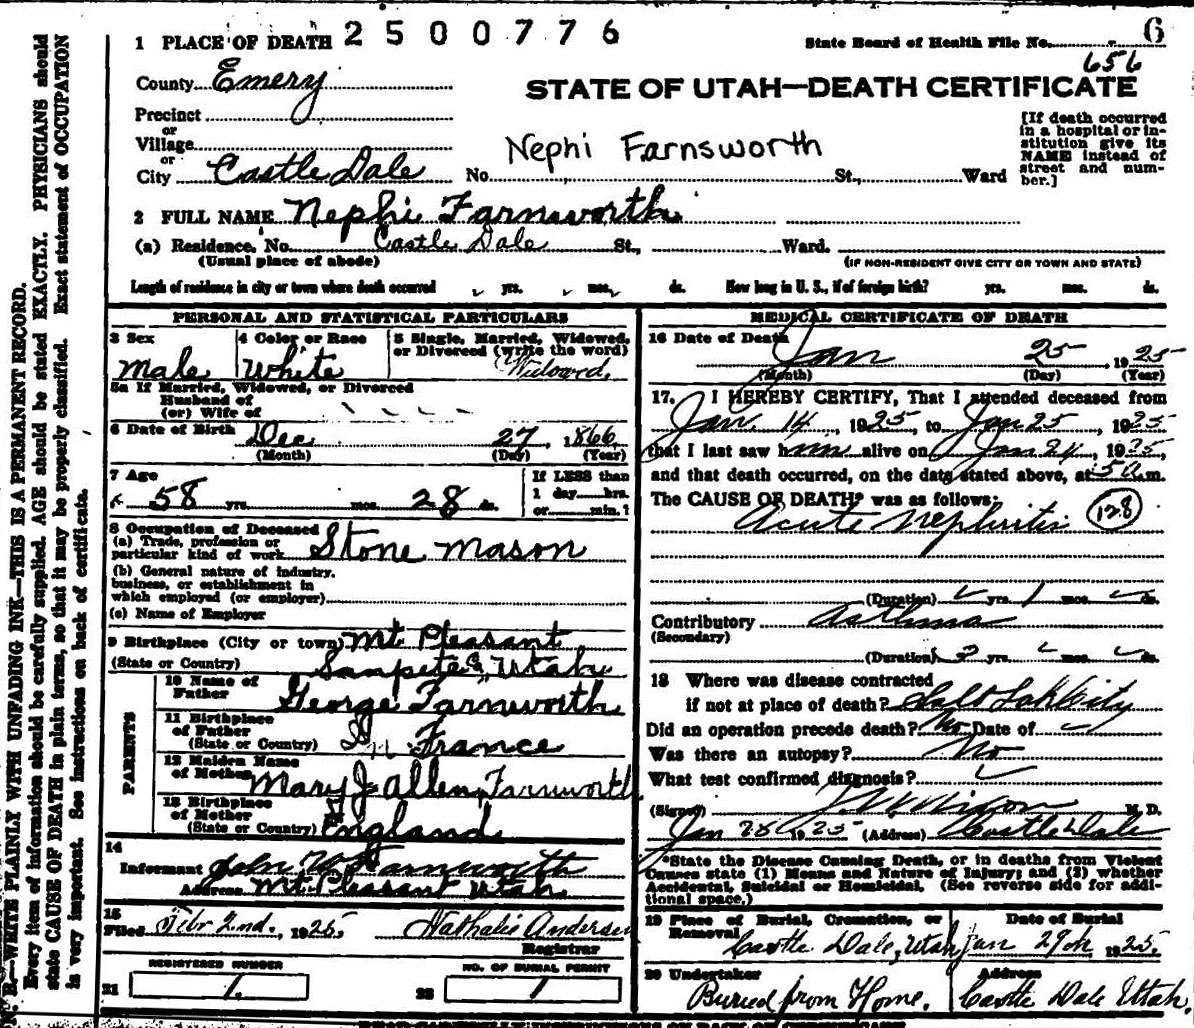 1 PLACE OF DEATH 2500776
State Board of Health File No. 6
656
County Emery
STATE OF UTAH—DEATH CERTIFICATE
Precinct
or
Village
or
City Castle Dale No. St., Ward
Nephi Farnsworth
[If death occurred
in a hospital or in-
stitution give its
NAME instead of
street and num-
ber.]
2 FULL NAME Nephi Farnsworth
(a) Residence. No. Castle Dale St., Ward.
(Usual place of abode) (IF NON-RESIDENT GIVE CITY OR TOWN AND STATE)
Length of residence in city or town where death occurred yrs. mos. ds. How long in U. S., if of foreign birth? yrs. mos. ds.
PERSONAL AND STATISTICAL PARTICULARS
3 Sex
Male
4 Color or Race
White
5 Single, Married, Widowed,
or Divorced (write the word)
Widowed.
5a If Married, Widowed, or Divorced
Husband of
(or) Wife of
6 Date of Birth Dec 27, 1866
(Month) (Day) (Year)
7 Age
58 yrs. mos. 28 ds.
If LESS than
1 day hrs.
or min.?
8 Occupation of Deceased
(a) Trade, profession or
particular kind of work Stone mason
(b) General nature of industry,
business, or establishment in
which employed (or employer)
(c) Name of Employer
9 Birthplace (City or town) Mt Pleasant
(State or Country) Sanpete Co Utah
PARENTS
10 Name of
Father George Farnworth
11 Birthplace
of Father
(State or Country) In France
12 Maiden Name
of Mother Mary J. Allen Farnworth
13 Birthplace
of Mother
(State or Country) England
14
Informant John W Farnworth
Address Mt Pleasant Utah
15
Filed Febr 2nd., 1925. Nathalie Andersen
Registrar
REGISTERED NUMBER
21 1.
NO. OF BURIAL PERMIT
22 1
MEDICAL CERTIFICATE OF DEATH
16 Date of Death
Jan 25, 1925
(Month) (Day) (Year)
17. I HEREBY CERTIFY, That I attended deceased from
Jan 14, 1925, to Jan 25, 1925
that I last saw him alive on Jan 24, 1925,
and that death occurred, on the date stated above, at 5 a.m.
The CAUSE OF DEATH* was as follows:
Acute Nephritis 128
(Duration) yrs. 1 mos. ds.
Contributory Asthma
(Secondary)
(Duration) yrs. mos. ds.
18 Where was disease contracted
if not at place of death? Salt Lake City
Did an operation precede death? No Date of
Was there an autopsy? No
What test confirmed diagnosis?
(Signed) M. D.
Jan 28 1925 (Address) Castle Dale
*State the Disease Causing Death, or in deaths from Violent
Causes state (1) Means and Nature of Injury; and (2) whether
Accidental, Suicidal or Homicidal. (See reverse side for addi-
tional space.)
19 Place of Burial, Cremation, or
Removal
Castle Dale, Utah
Date of Burial
Jan 29th, 1925.
20 Undertaker
Buried from Home.
Address
Castle Dale Utah.
N. B.—WRITE PLAINLY WITH UNFADING INK—THIS IS A PERMANENT RECORD.
Every item of information should be carefully supplied. AGE should be stated EXACTLY. PHYSICIANS should
state CAUSE OF DEATH in plain terms, so that it may be properly classified. Exact statement of OCCUPATION
is very important. See instructions on back of certificate.